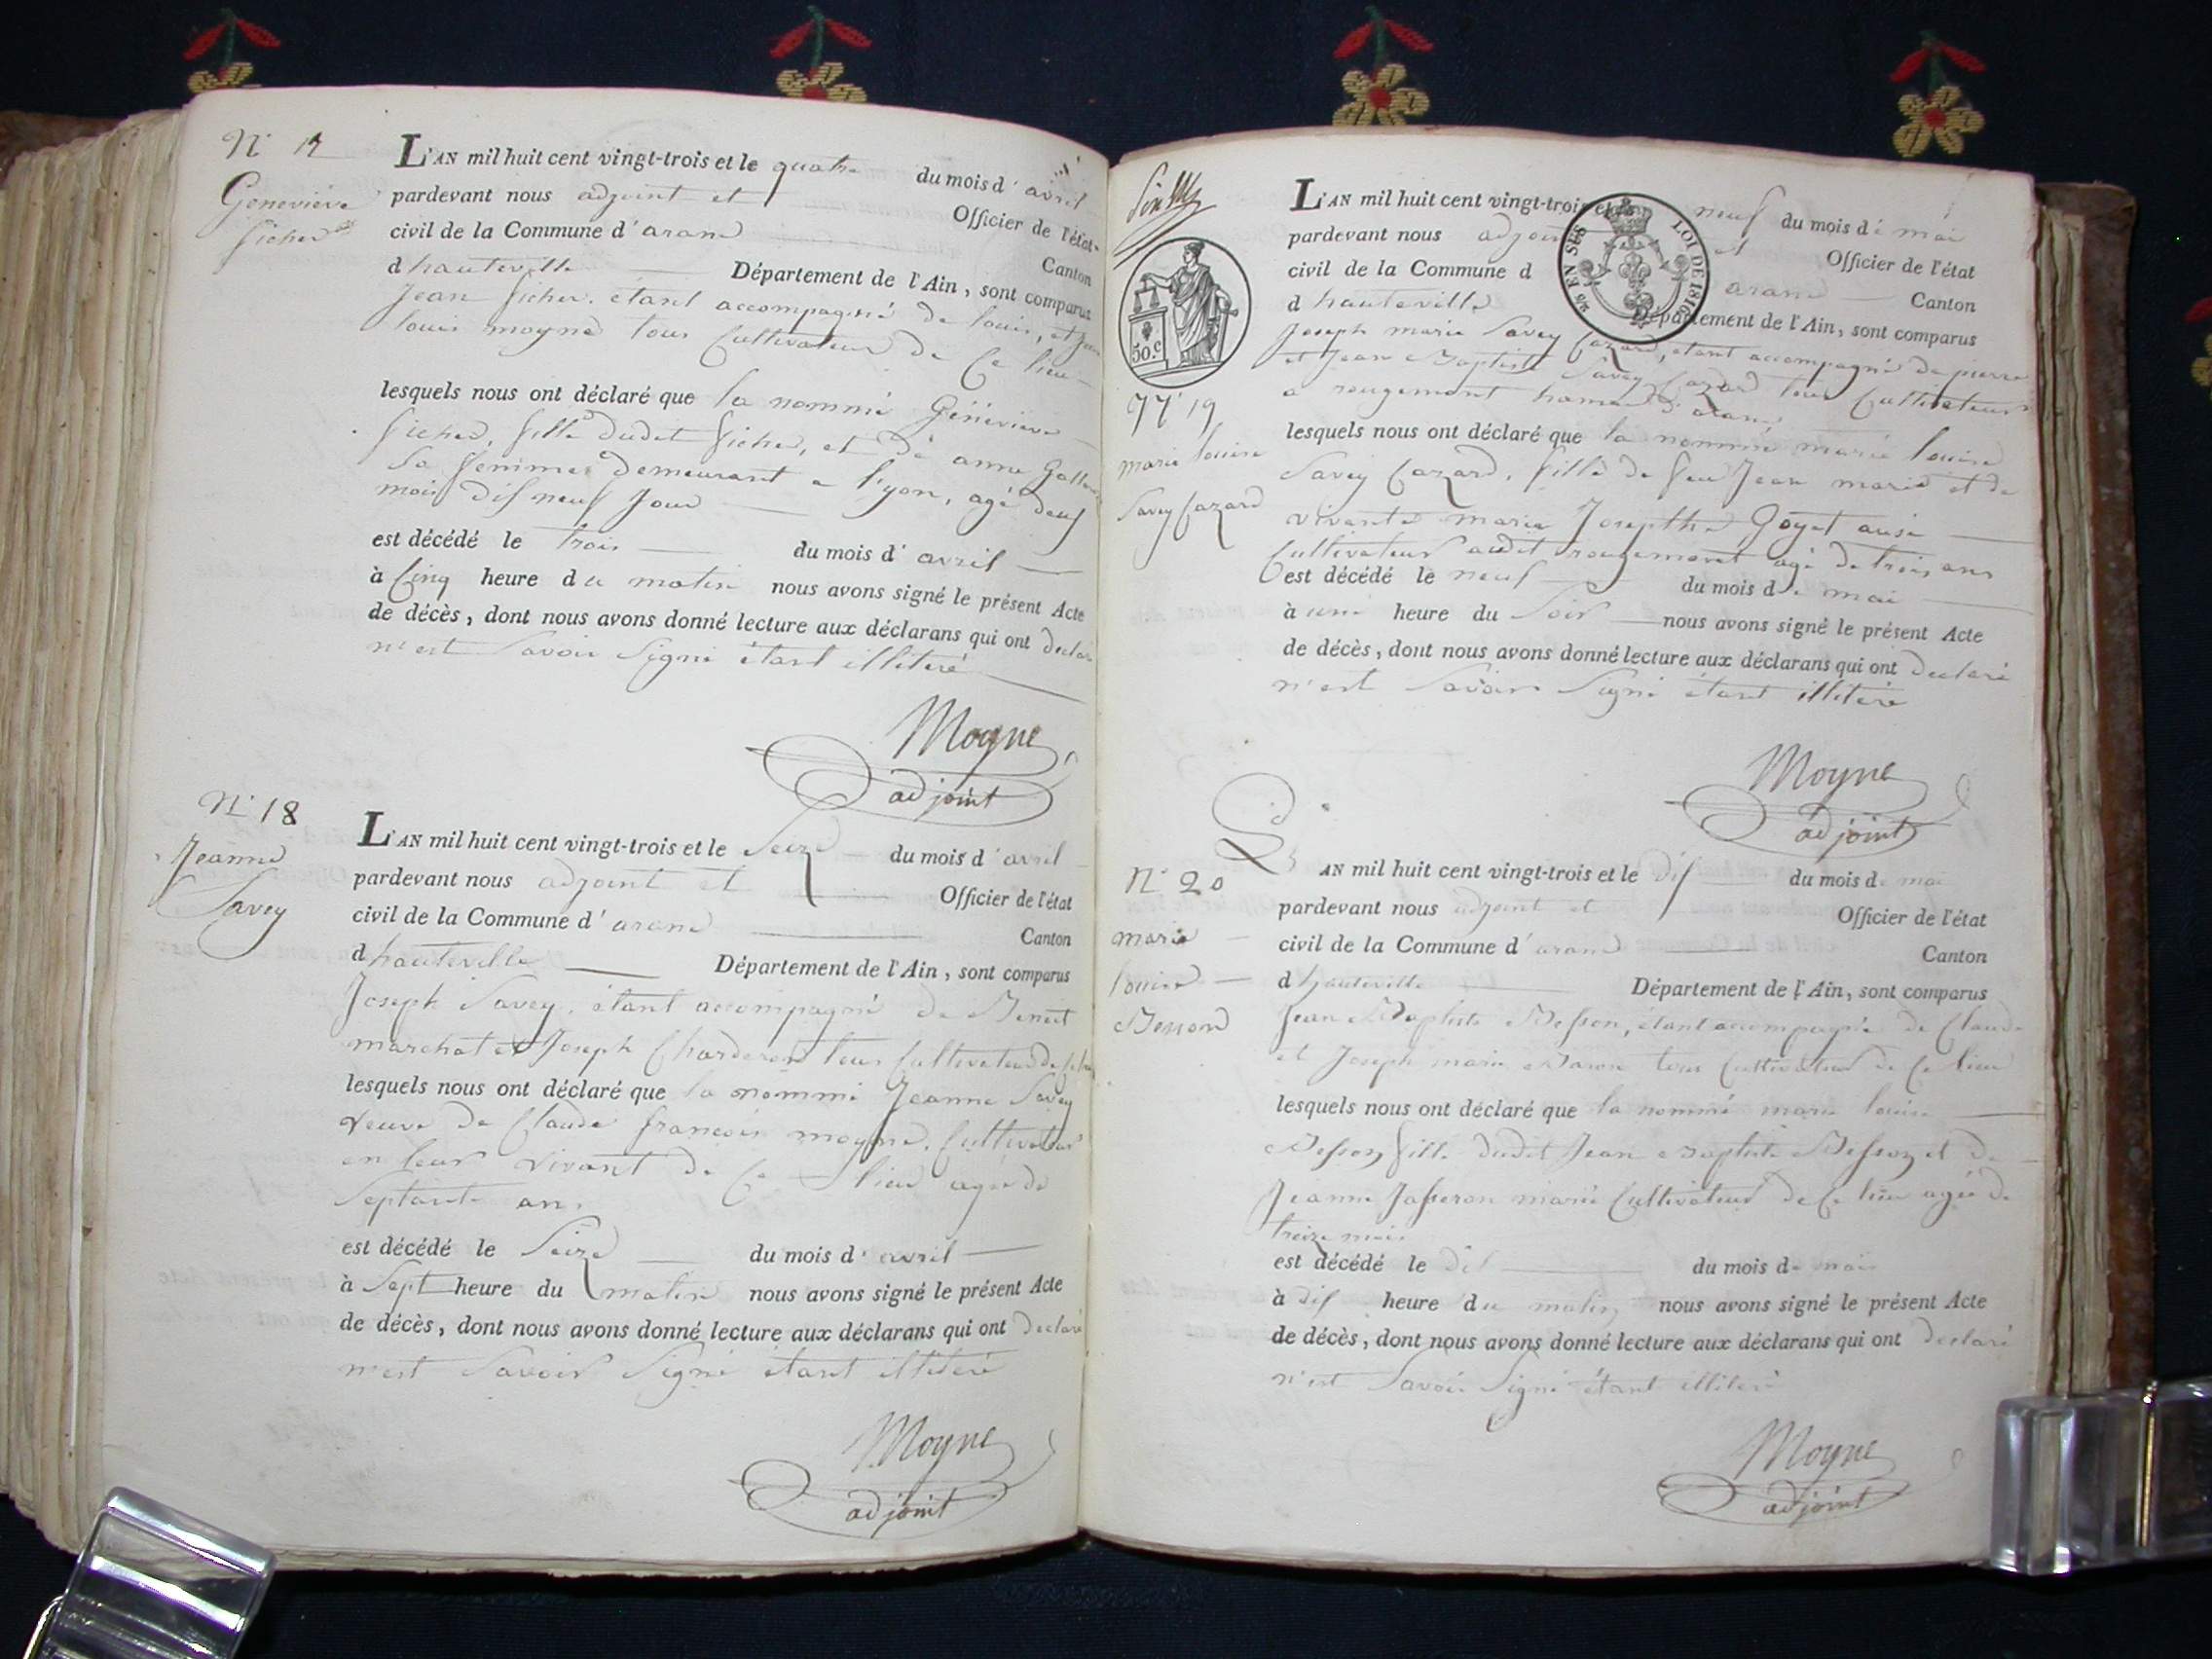 N.° 17
Geneviève
ficher
L'AN mil huit cent vingt-trois et le quatre du mois d'avril
pardevant nous adjoint et Officier de l'état-
civil de la Commune d'arand Canton
d hauteville Département de l'Ain, sont comparus
Jean ficher. étant accompagné de louis, et jean
louis moyne tous Cultivateur de Ce lieu
lesquels nous ont déclaré que la nommé Géneviève
ficher, fille dudit ficher, et de anne
Sa femme demeurant a lyon, agé deuf
mois dif neuf Jour
est décédé le trois du mois d'avril
à Cinq heure du matin nous avons signé le présent Acte
de décès, dont nous avons donné lecture aux déclarans qui ont declaré
n'est Savoir Signé étant illiteré
Moyne
adjoint
N.° 18
Jeanne
Savey
L'AN mil huit cent vingt-trois et le Seize du mois d'avril
pardevant nous adjoint et Officier de l'état
civil de la Commune d'arand Canton
d hauteville Département de l'Ain, sont comparus
Joseph Savey, étant accompagné de Benoit
marchat et Joseph Charderon tous Cultivateur de Ce lieu
lesquels nous ont déclaré que la nommé Jeanne Savey
veuve de Claude francois moyne. Cultivateur
en leur vivant de Ce lieu agée de
Septante ans
est décédé le Seize du mois d'avril
à Sept heure du matin nous avons signé le présent Acte
de décès, dont nous avons donné lecture aux déclarans qui ont declaré
n'est Savoir Signé étant illiteré
Moyne
adjoint
50.c
25 EN SUS LOI DE 1816
N.° 19
marie louise
Savey Cazard
L'AN mil huit cent vingt-trois et le neuf du mois de mai
pardevant nous adjoint et Officier de l'état
civil de la Commune d arand Canton
d hauteville Département de l'Ain, sont comparus
Joseph marie Savey Cazard, étant accompagné de pierre
et Jean Baptiste Savey Cazard tous Cultivateur
a rougemont hameau d'arand,
lesquels nous ont déclaré que la nommé marie louise
Savey Cazard, fille de feu Jean marie et de
vivante marie Josepthe Goyet ausi
Cultivateur audit rougemont agé de trois ans
est décédé le neuf du mois de mai
à une heure du Soir nous avons signé le présent Acte
de décès, dont nous avons donné lecture aux déclarans qui ont declaré
n'est Savoir Signé étant illiteré
Moyne
adjoint
N.° 20
marie
louise
Besson
L'AN mil huit cent vingt-trois et le dif du mois de mai
pardevant nous adjoint et Officier de l'état
civil de la Commune d'arand Canton
d hauteville Département de l'Ain, sont comparus
Jean Baptiste Besson, étant accompagné de Claude
et Joseph marie tous Cultivateur de Ce lieu
lesquels nous ont déclaré que la nommé marie louise
Besson fille dudit Jean Baptiste Besson et de
Jeanne Jasseron marié Cultivateur de Ce lieu agée de
treize mois
est décédé le dif du mois de mai
à dif heure du matin nous avons signé le présent Acte
de décès, dont nous avons donné lecture aux déclarans qui ont declaré
n'est Savoir Signé étant illiteré
Moyne
adjoint